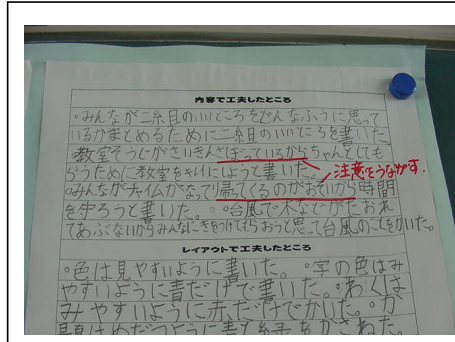 内容で工夫したところ
・みんなが二組目のいいところをどんなふうに思って
いるかまとめるために二組のいいところを書いた。
教室そうじがさいきんさぼっているからちゃんとしても
らうために教室をきれいにしようと書いた。
・みんながチャイムがなって帰ってくるのがおそいから時間
を守ろうと書いた。・台風で木などがたおれ
てあぶないからみんなにきをつけてもらおうと思って台風のことをかいた。
注意をうながす。
レイアウトで工夫したところ
・色は見やすいように書いた。・字の色はみ
やすいように青だけで書いた。・わくは
みやすいように赤だけでかいた。・か